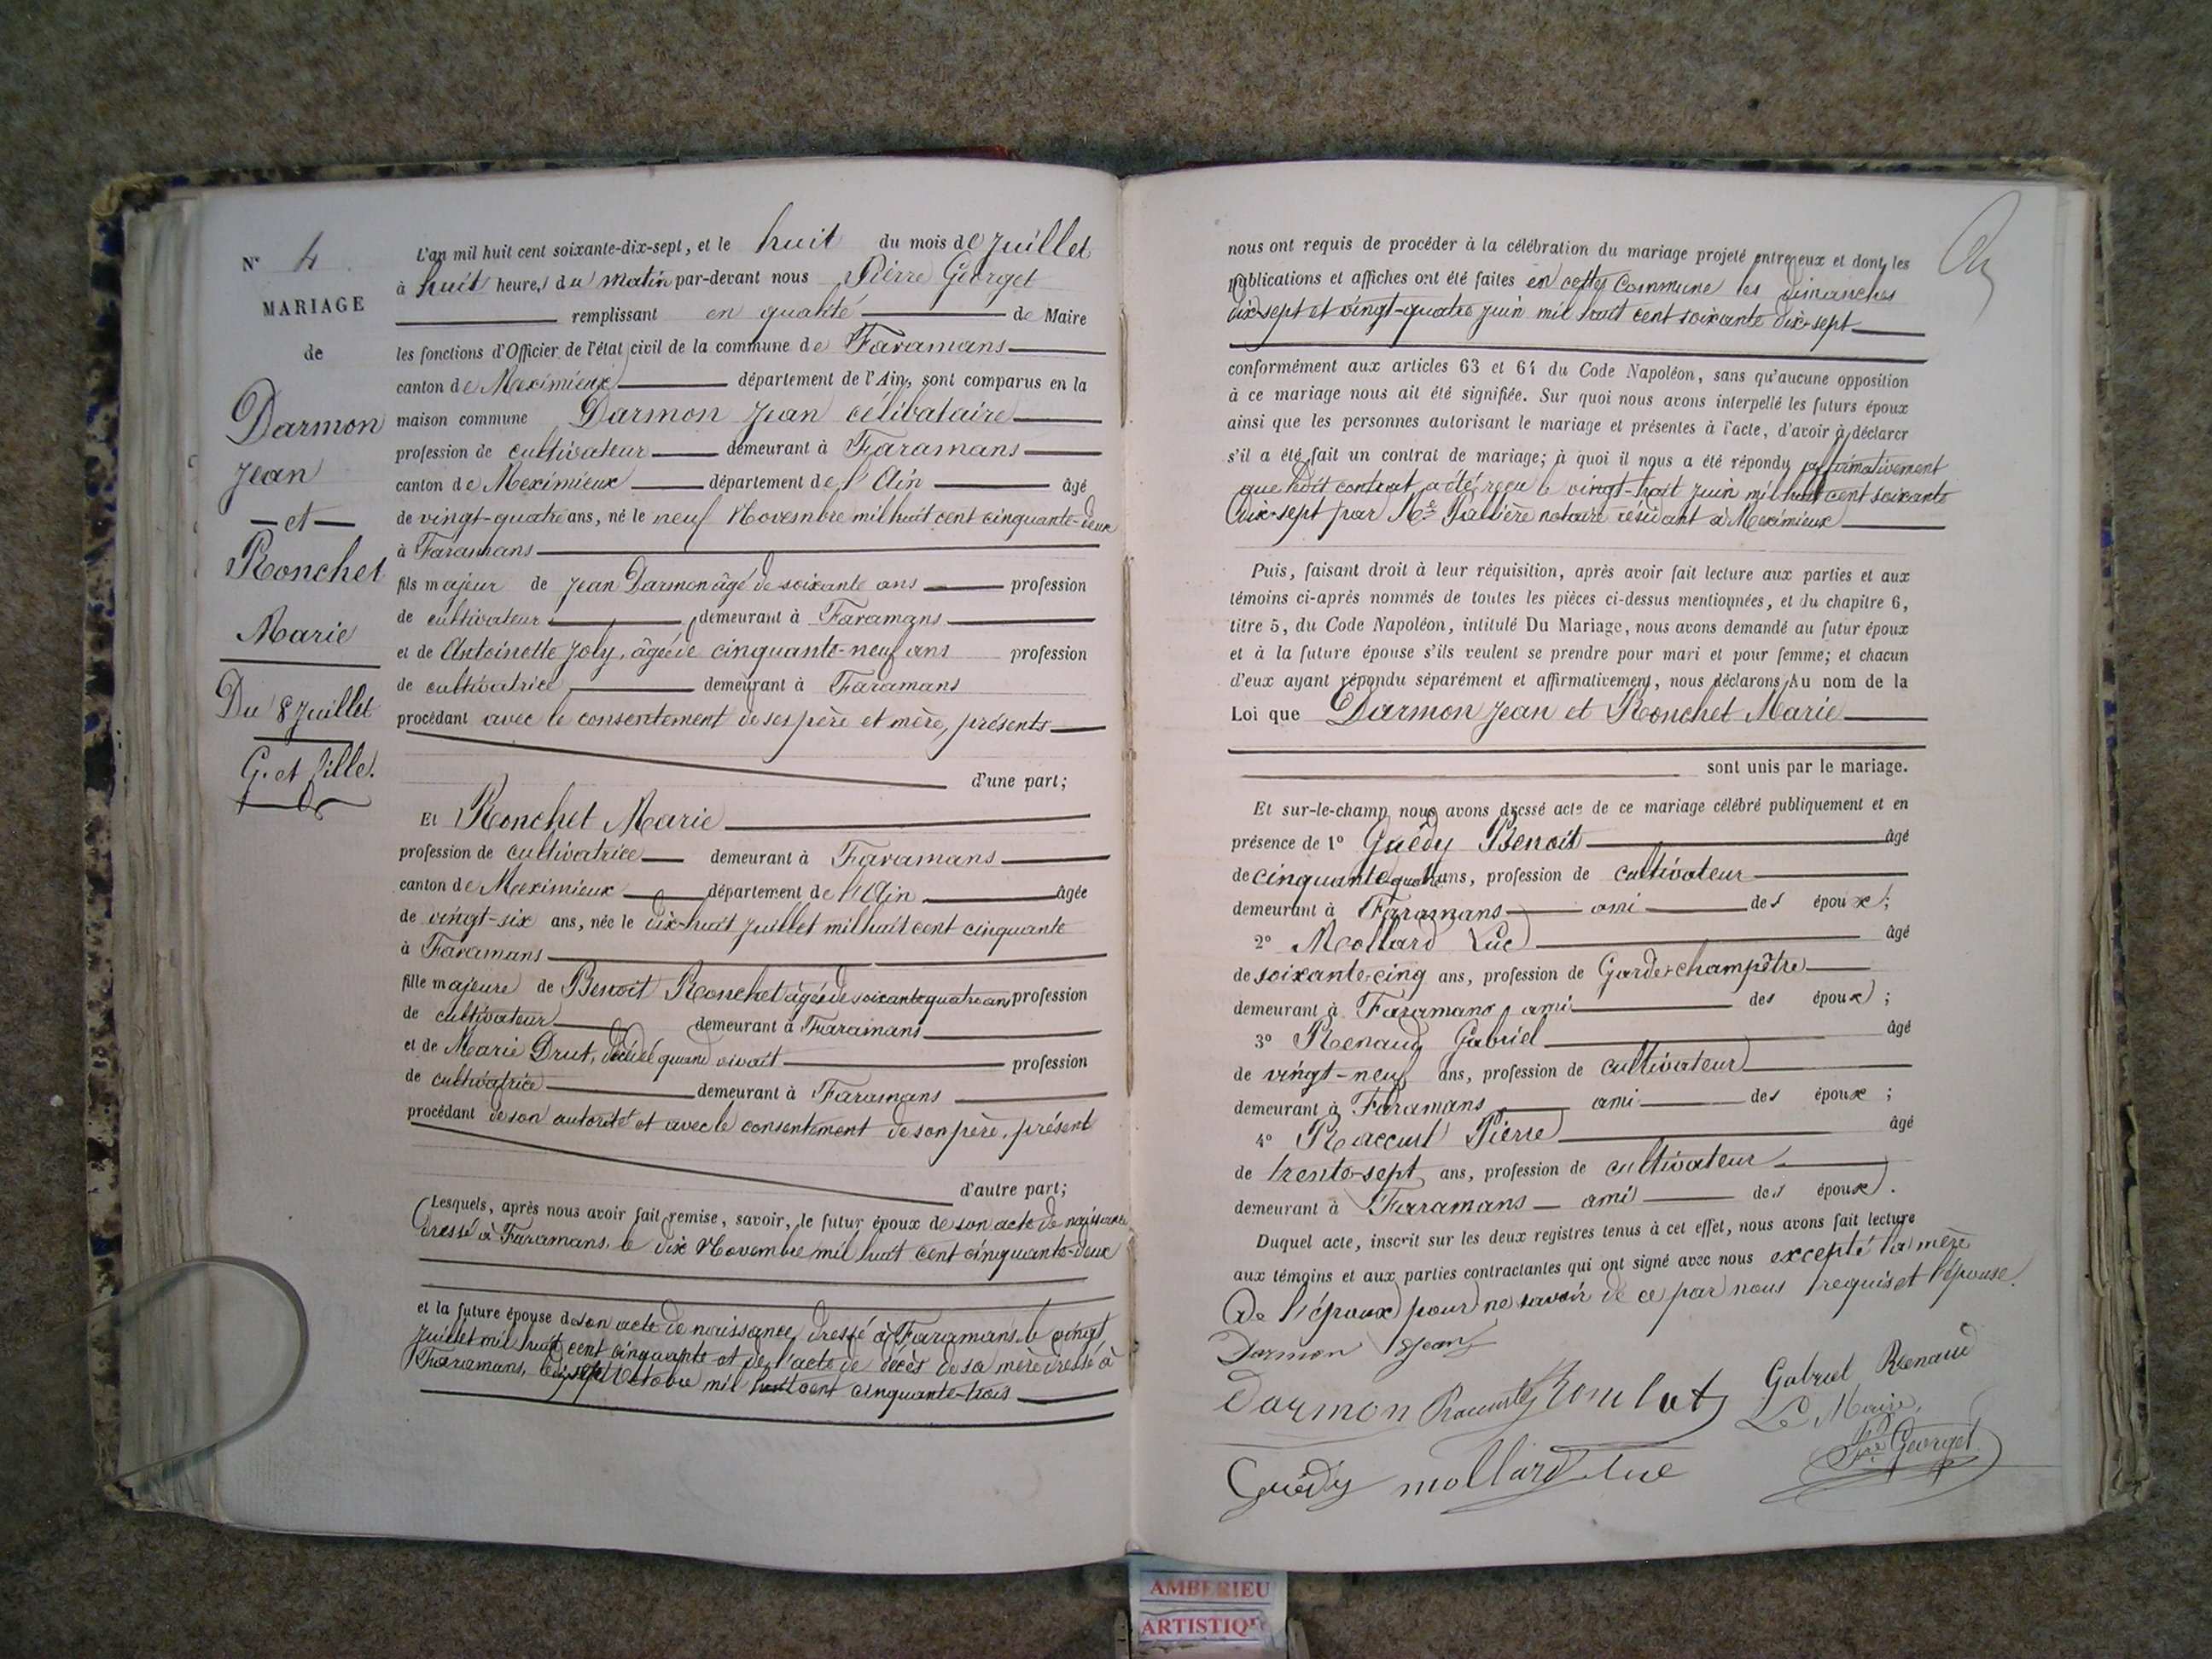 N° 4
MARIAGE
de
Darmon
Jean
— et —
Ronchet
Marie
Du 8 Juillet
G. et fille.
L'an mil huit cent soixante-dix-sept, et le huit du mois de Juillet
à huit heures du matin par-devant nous Pierre Georget
remplissant en qualité de Maire
les fonctions d'Officier de l'état civil de la commune de Faramans
canton de Meximieux département de l'Ain, sont comparus en la
maison commune Darmon Jean célibataire
profession de cultivateur demeurant à Faramans
canton de Meximieux département de l'Ain âgé
de vingt-quatre ans, né le neuf Novembre mil huit cent cinquante-deux
à Faramans
fils majeur de Jean Darmon âgé de soixante ans profession
de cultivateur demeurant à Faramans
et de Antoinette Joly, âgée de cinquante-neuf ans profession
de cultivatrice demeurant à Faramans
procédant avec le consentement de ses père et mère, présents
d'une part;
Et Ronchet Marie
profession de cultivatrice demeurant à Faramans
canton de Meximieux département de l'Ain âgée
de vingt-six ans, née le dix-huit Juillet mil huit cent cinquante
à Faramans
fille majeure de Benoit Ronchet âgé de soixante quatre ans profession
de cultivateur demeurant à Faramans
et de Marie Drut, décédé quand vivait profession
de cultivatrice demeurant à Faramans
procédant de son autorité et avec le consentement de son père, présent
d'autre part;
Lesquels, après nous avoir fait remise, savoir, le futur époux de son acte de naissance
dressé à Faramans, le dix Novembre mil huit cent cinquante-deux
et la future épouse de son acte de naissance, dressé à Faramans le vingt
Juillet mil huit cent cinquante et de l'acte de décès de sa mère dressé à
Faramans, le dix sept Octobre mil huit cent cinquante-trois
nous ont requis de procéder à la célébration du mariage projeté entre eux et dont les
publications et affiches ont été faites en cette commune les dimanches
dix-sept et vingt-quatre juin mil huit cent soixante dix-sept
conformément aux articles 63 et 64 du Code Napoléon, sans qu'aucune opposition
à ce mariage nous ait été signifiée. Sur quoi nous avons interpellé les futurs époux
ainsi que les personnes autorisant le mariage et présentes à l'acte, d'avoir à déclarer
s'il a été fait un contrat de mariage; à quoi il nous a été répondu affirmativement
que ledit contrat a été reçu le vingt-huit juin mil huit cent soixante
dix-sept par Me notaire résidant à Meximieux
Puis, faisant droit à leur réquisition, après avoir fait lecture aux parties et aux
témoins ci-après nommés de toutes les pièces ci-dessus mentionnées, et du chapitre 6,
titre 5, du Code Napoléon, intitulé Du Mariage, nous avons demandé au futur époux
et à la future épouse s'ils veulent se prendre pour mari et pour femme; et chacun
d'eux ayant répondu séparément et affirmativement, nous déclarons Au nom de la
Loi que Darmon Jean et Ronchet Marie
sont unis par le mariage.
Et sur-le-champ nous avons dressé acte de ce mariage célébré publiquement et en
présence de 1° Guédy Benoit âgé
de cinquante quatre ans, profession de cultivateur
demeurant à Faramans ami des époux;
2° Mollard Luc âgé
de soixante-cinq ans, profession de Garde-champêtre
demeurant à Faramans, ami des époux;
3° Renaud Gabriel âgé
de vingt-neuf ans, profession de cultivateur
demeurant à Faramans ami des époux;
4° Raccurt Pierre âgé
de trente-sept ans, profession de cultivateur
demeurant à Faramans — ami des époux.
Duquel acte, inscrit sur les deux registres tenus à cet effet, nous avons fait lecture
aux témoins et aux parties contractantes qui ont signé avec nous excepté la mère
de l'époux pour ne savoir de ce par nous requis et l'épouse.
Darmon Jean
Darmon Raccurt Gabriel Renaud
Le Maire,
Guédy mollard luc Pre Georget
AMBERIEU
ARTISTIQ